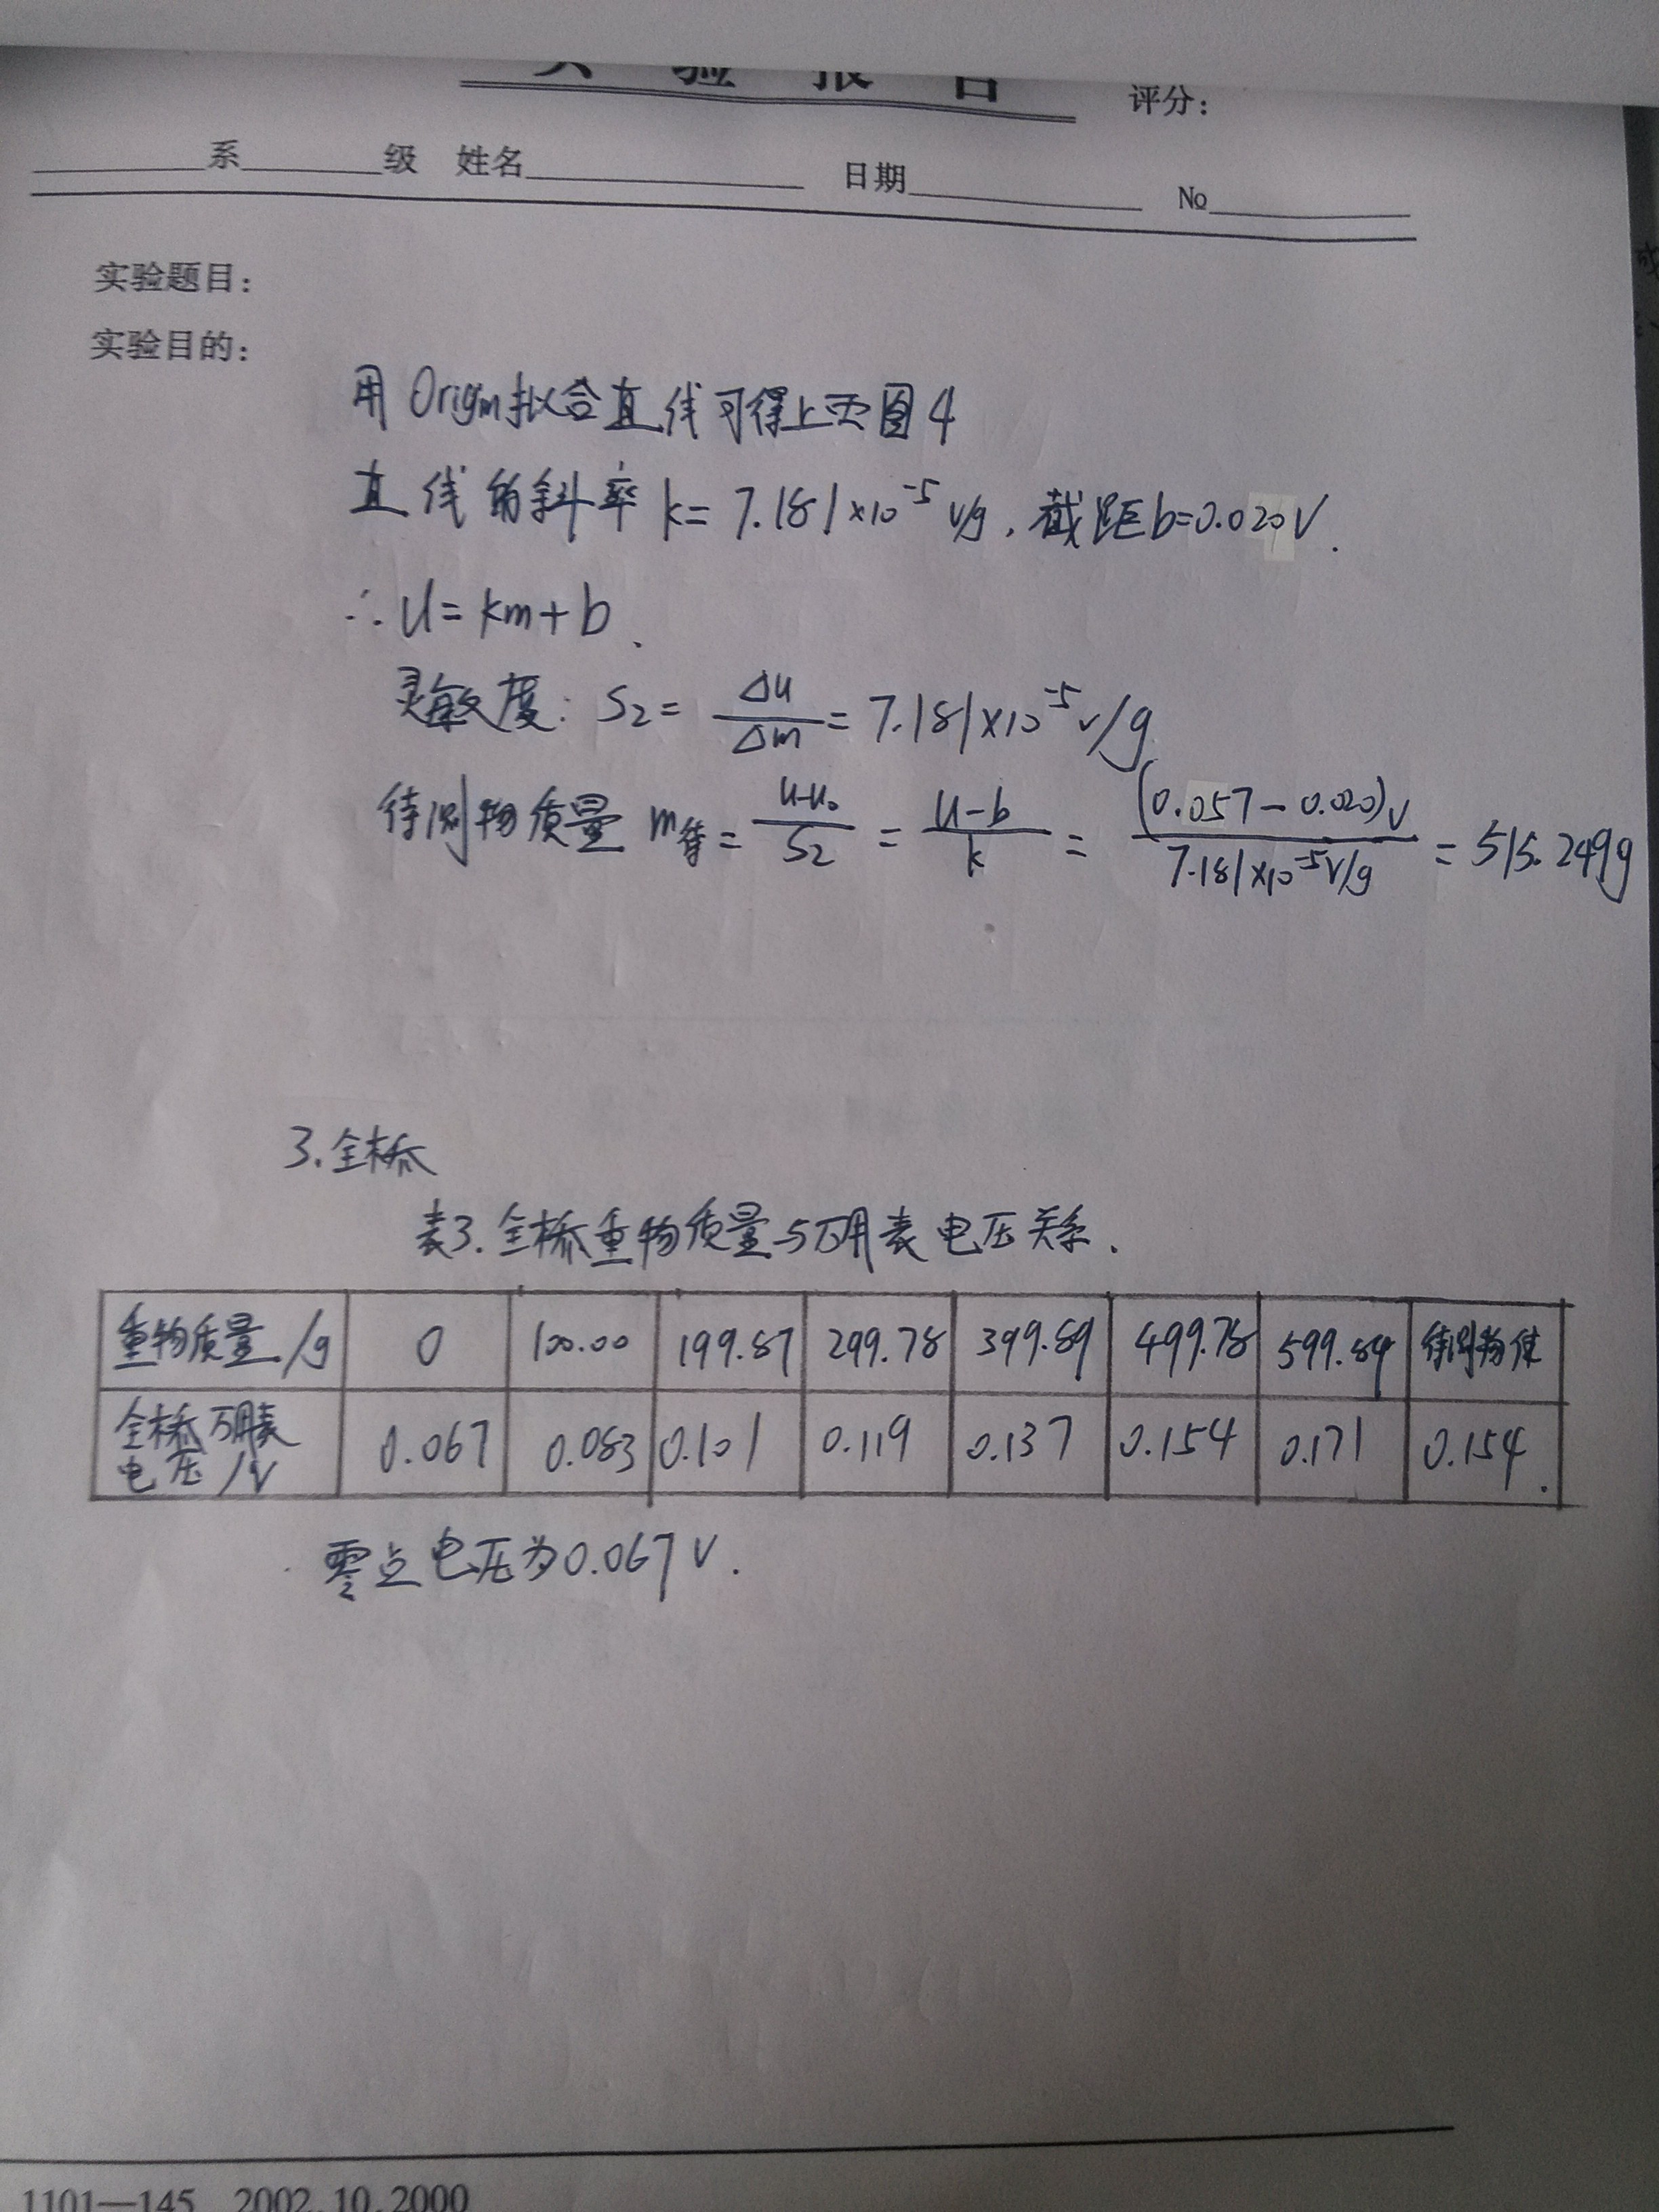 实验报告
评分：
系 级 姓名 日期 №
实验题目：
实验目的：
用Origin拟合直线可得上页图4
直线的斜率k=7.181×10⁻⁵V/g，截距b=0.020V.
∴U=km+b.
灵敏度：S₂=ΔU/Δm=7.181×10⁻⁵V/g
待测物质量 m待=(U-U₀)/S₂=(U-b)/k=(0.057-0.020)V/(7.181×10⁻⁵V/g)=515.249g
3.全桥
表3.全桥重物质量与万用表电压关系.
重物质量/g 0 100.00 199.87 299.78 399.89 499.78 599.84 待测物体
全桥万用表电压/V 0.067 0.083 0.101 0.119 0.137 0.154 0.171 0.154.
零点电压为0.067V.
1101—145 2002.10.2000